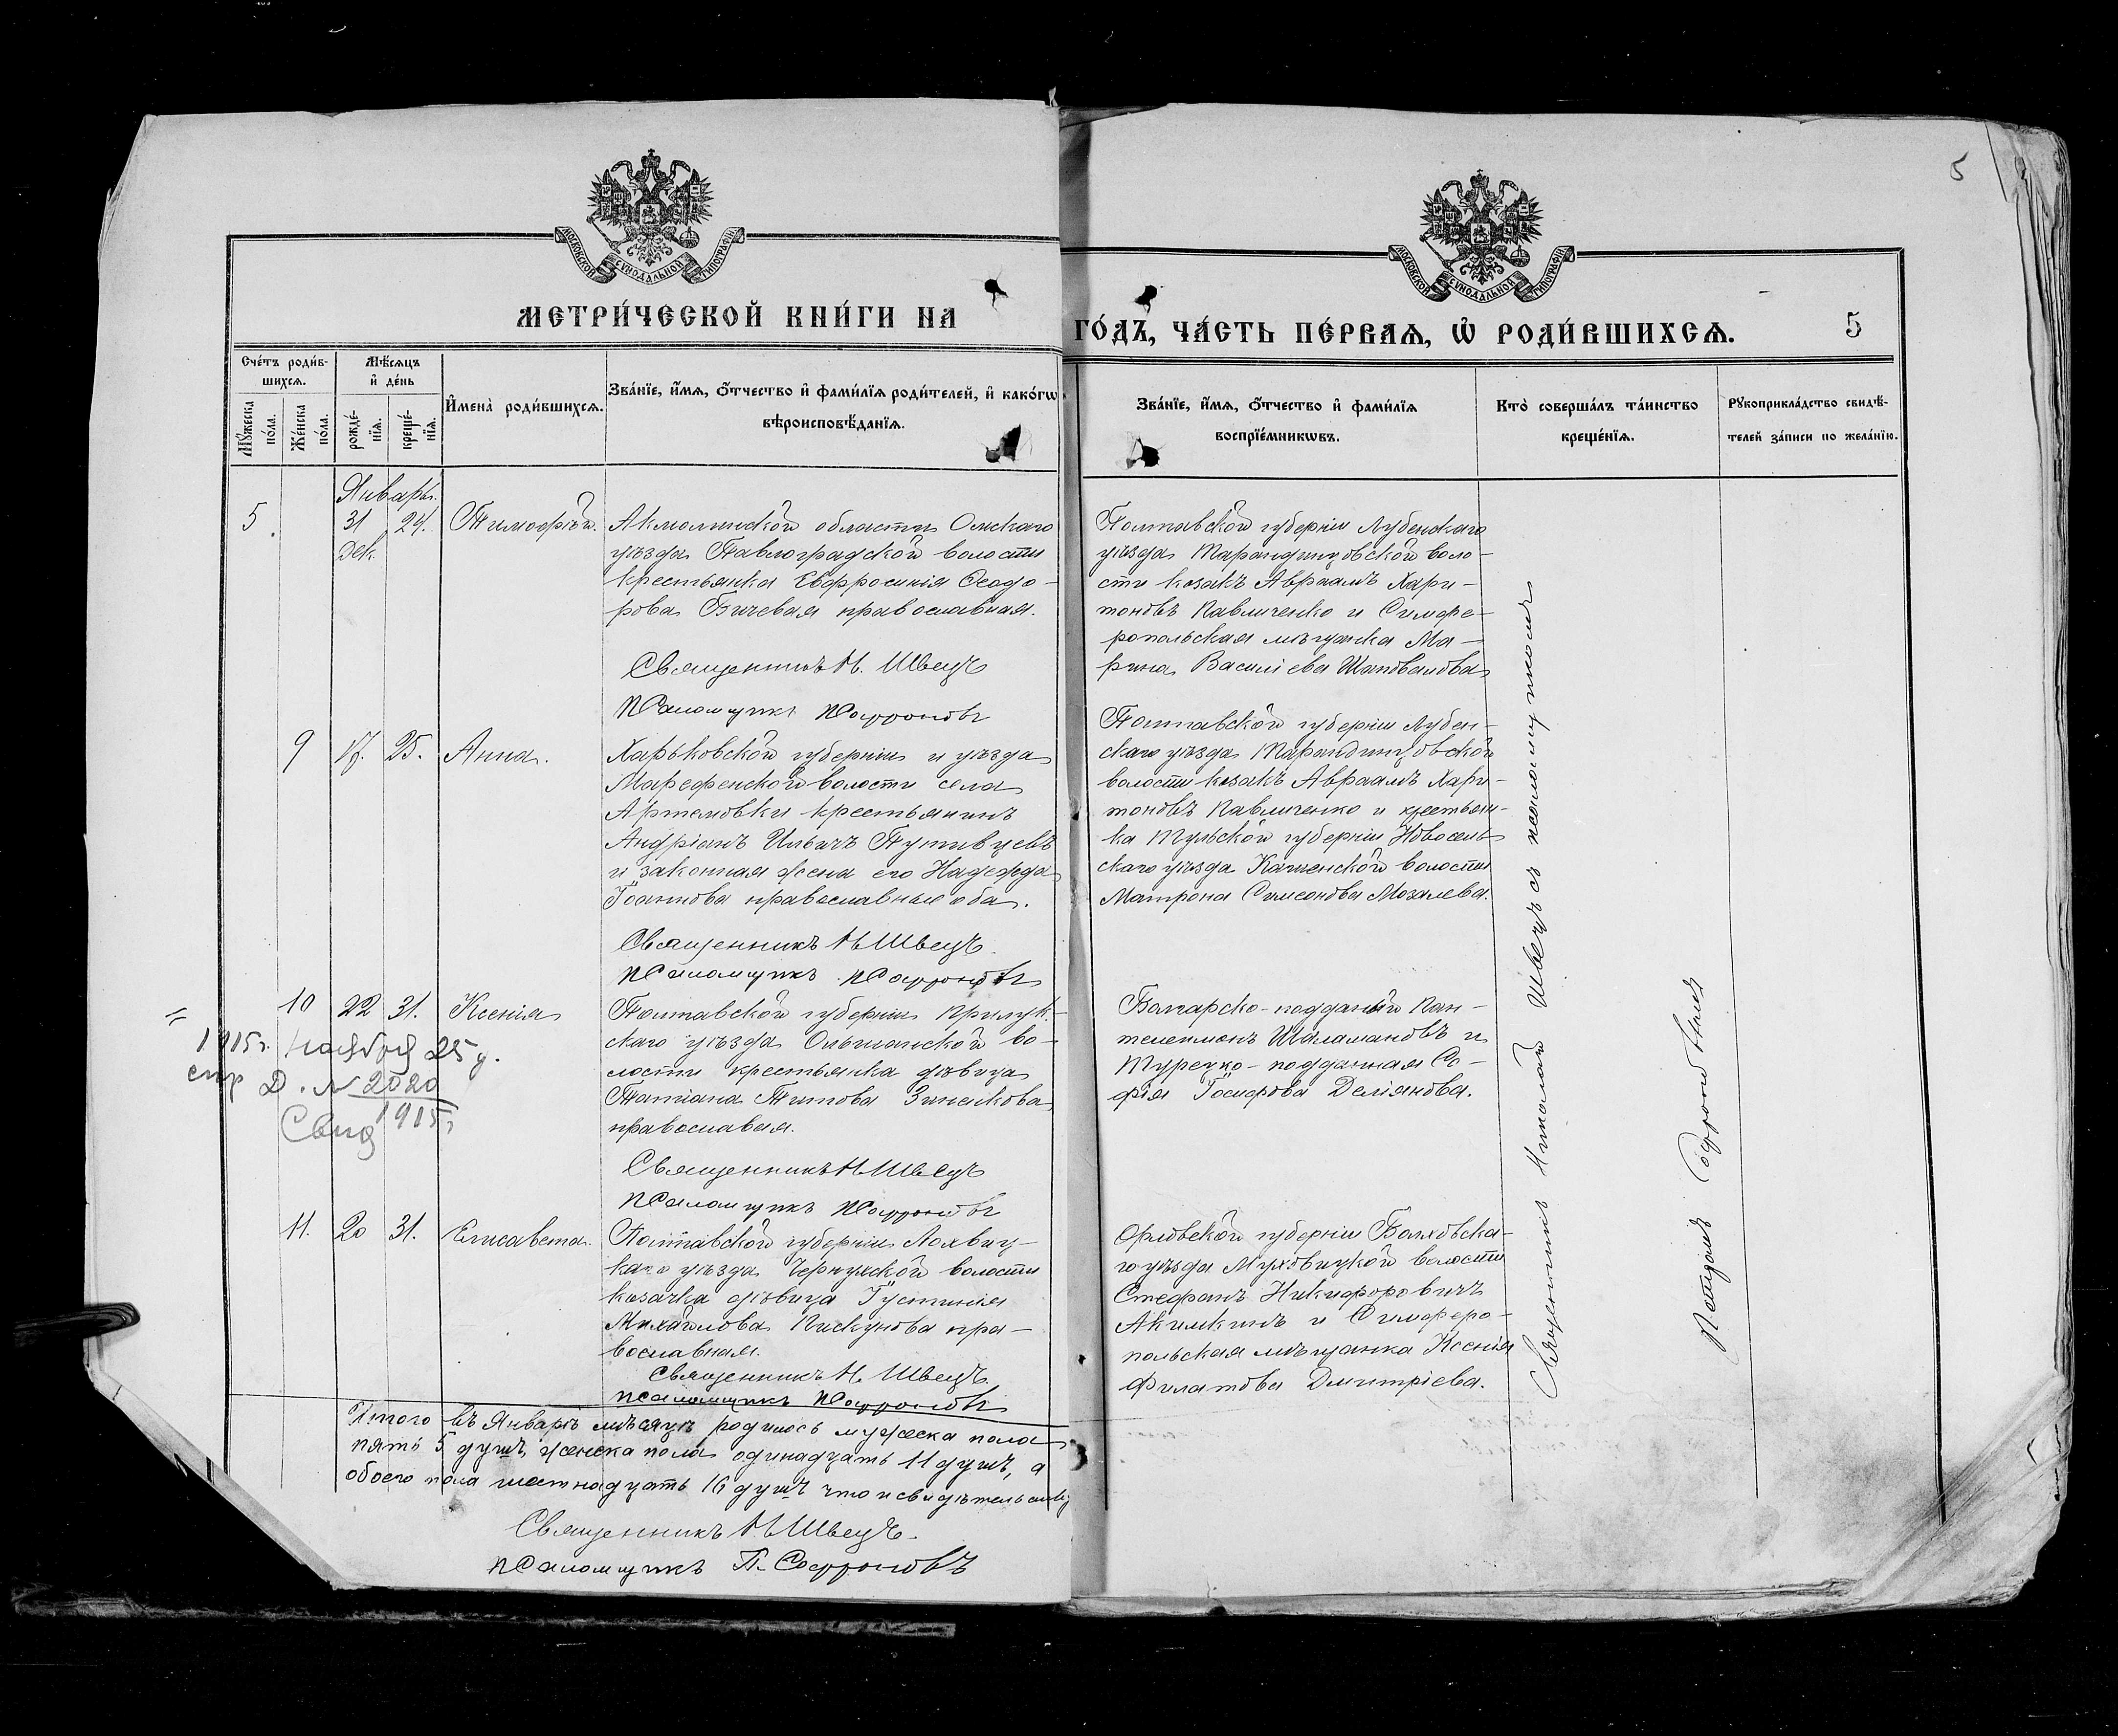 5
МОСКОВСКОЙ СѴНОДАЛЬНОЙ ТИПОГРАФІИ
МОСКОВСКОЙ СѴНОДАЛЬНОЙ ТИПОГРАФІИ
МЕТРИ́ЧЕСКОЙ КНИ́ГИ НА
ГО́ДЪ, ЧА́СТЬ ПЕ́РВАѦ, Ѡ РОДИ́ВШИХСѦ.
5
Сче́тъ роди́в-
шихсѧ.
Мѣ́сѧцъ
и де́нь
Мꙋ́жеска
по́ла.
Же́нска
по́ла.
рожде́-
нїѧ.
креще́-
нїѧ.
И҆мена̀ роди́вшихсѧ.
Зва́нїе, и҆́мѧ, ѻ҆́тчество и҆ фами́лїѧ роди́телей, и҆ како́гѡ
вѣроисповѣ́данїѧ.
Зва́нїе, и҆́мѧ, ѻ҆́тчество и҆ фами́лїѧ
воспрїе́мникѡвъ.
Кто̀ соверша́лъ та́инство
креще́нїѧ.
Рꙋкоприкла́дство свидѣ́-
телей за́писи по жела́нїю.
Январь.
5.
31
24.
Дек.
Тимоѳѣй.
Акмолинской области Омскаго
уѣзда Павлоградской волости
крестьянка Евфросинія Ѳеодо-
рова Бичевая православная.
Священникъ Н. Швецъ
Псаломщикъ П Софроновъ
Полтавской губерніи Лубенскаго
уѣзда Тарандинцовской воло-
сти козакъ Авраамъ Хари-
тоновъ Павличенко и Симфе-
ропольская мѣщанка Ма-
рина Василіева Шаповалова
9
17.
25.
Анна.
Харьковской губерніи и уѣзда
Мерефенской волости села
Артемовки крестьянинъ
Андріанъ Ильичъ Путивцевъ
и законная жена его Надежда
Іоаннова православные оба.
Священникъ Н Швецъ.
Псаломщикъ П Софроновъ
Полтавской губерніи Лубен-
скаго уѣзда Тарандинцовской
волости козакъ Авраамъ Хари-
тоновъ Павличенко и крестьян-
ка Тульской губерніи Новосель-
скаго уѣзда Каменской волости
Матрона Симеонова Мозалева.
10
22
31.
Ксенія
Полтавской губерніи Прилук-
скаго уѣзда Ольшанской во-
лости крестьянка дѣвица
Татіана Титова Зинакова
православая.
Священникъ Н Швецъ
Псаломщикъ П Софроновъ
Болгарско-подданый Пан-
телеимонъ Шаламановъ и
Турецко-подданная Со-
фія Іосифова Деліянова.
1915г. Ноября 25 д.
Д. № 2020
1915г.
Свид
11.
20
31.
Елисавета.
Полтавской губерніи Лохвиц-
каго уѣзда Чернухской волости
козачка дѣвица Іустинія
Михайлова Пискунова пра-
вославная.
Священникъ Н. Швецъ.
Псаломщикъ П Софроновъ
Орловской губерніи Болховска-
го уѣзда Муховицкой волости
Стефанъ Никифоровичъ
Акимкинъ и Симферо-
польская мѣщанка Ксенія
Филатова Дмитріева.
Священникъ Николай Швецъ съ псаломщикомъ
Софроновымъ
Итого въ Январѣ мѣсяцѣ родилось мужеска пола
пять 5 душъ, женска пола одинадцать 11 душъ, а
обоего пола шестнадцать 16 душъ что и свидѣтельству
Священникъ Н Швецъ.
Псаломщикъ П. Софроновъ